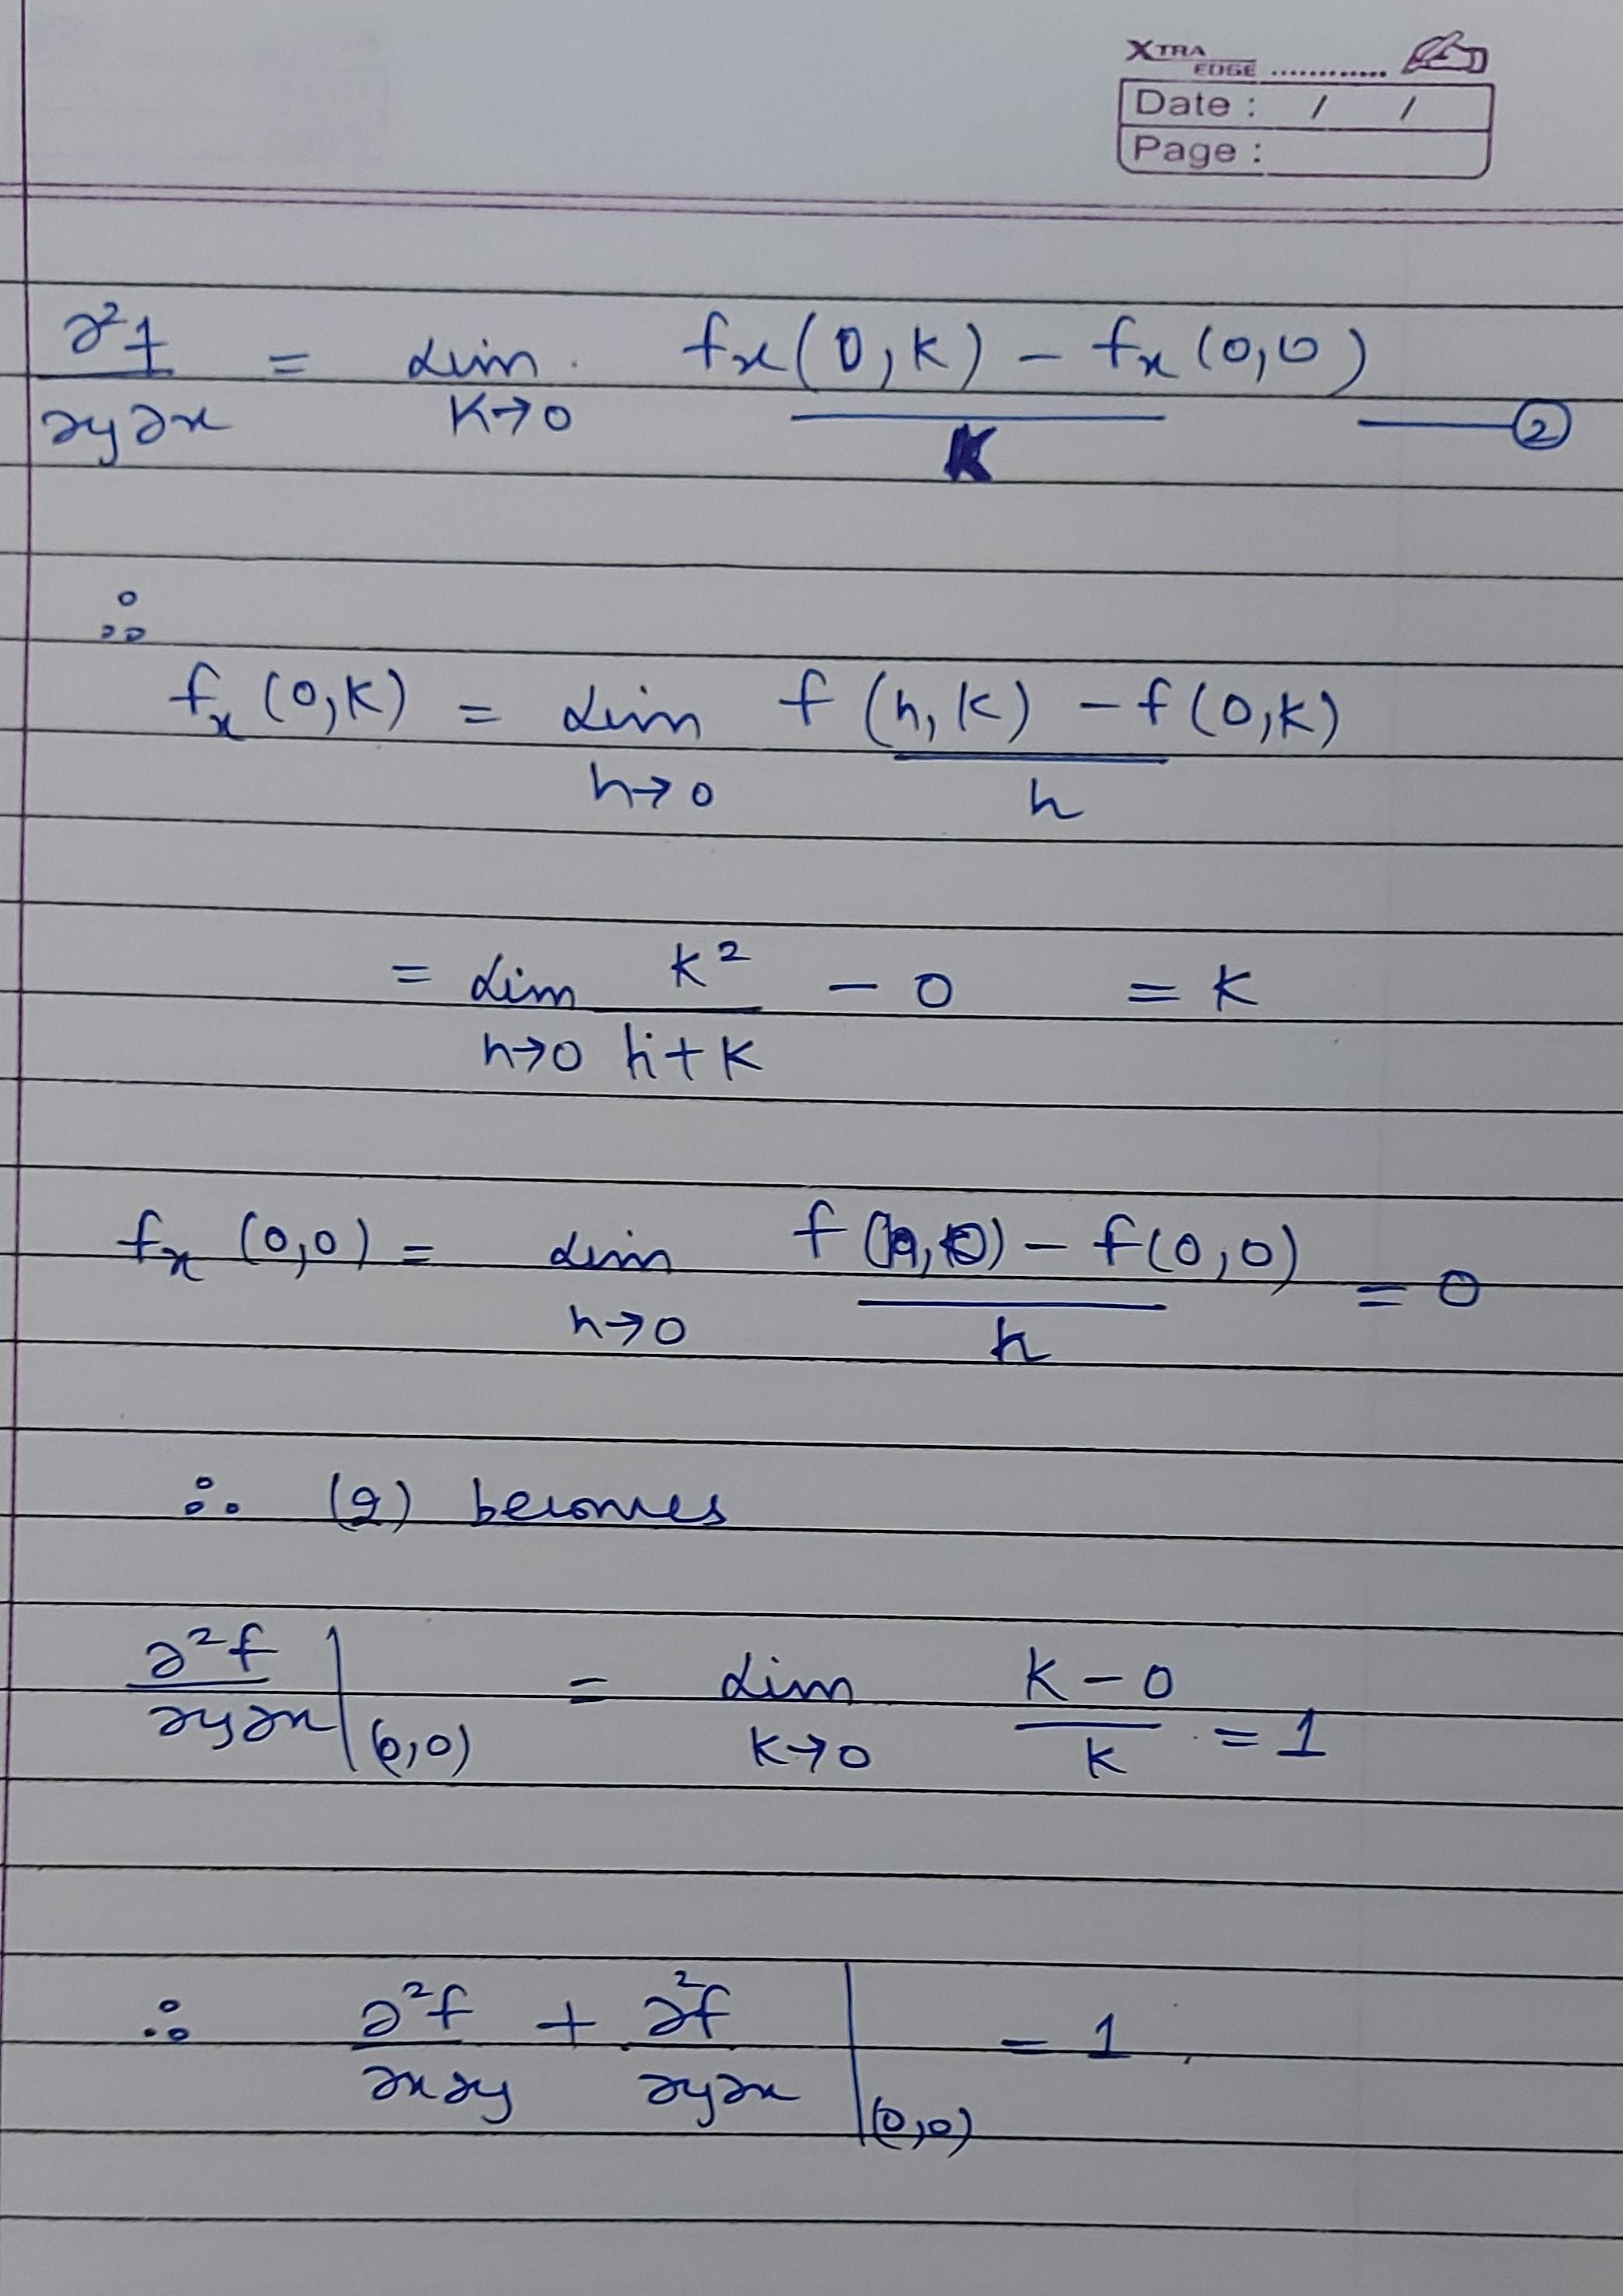 XTRA EDGE ............
Date : / /
Page :
∂²f/∂y∂x = Lim K→0 (fx(0,K) − fx(0,0))/K —— ②
∴
fx(0,K) = Lim h→0 (f(h,K) − f(0,K))/h
= Lim h→0 K²/(h+K) − 0 = K
fx(0,0) = Lim h→0 (f(h,0) − f(0,0))/h = 0
∴ (2) becomes
∂²f/∂y∂x |(0,0) = Lim K→0 (K−0)/K = 1
∴ ∂²f/∂x∂y + ∂²f/∂y∂x |(0,0) = 1